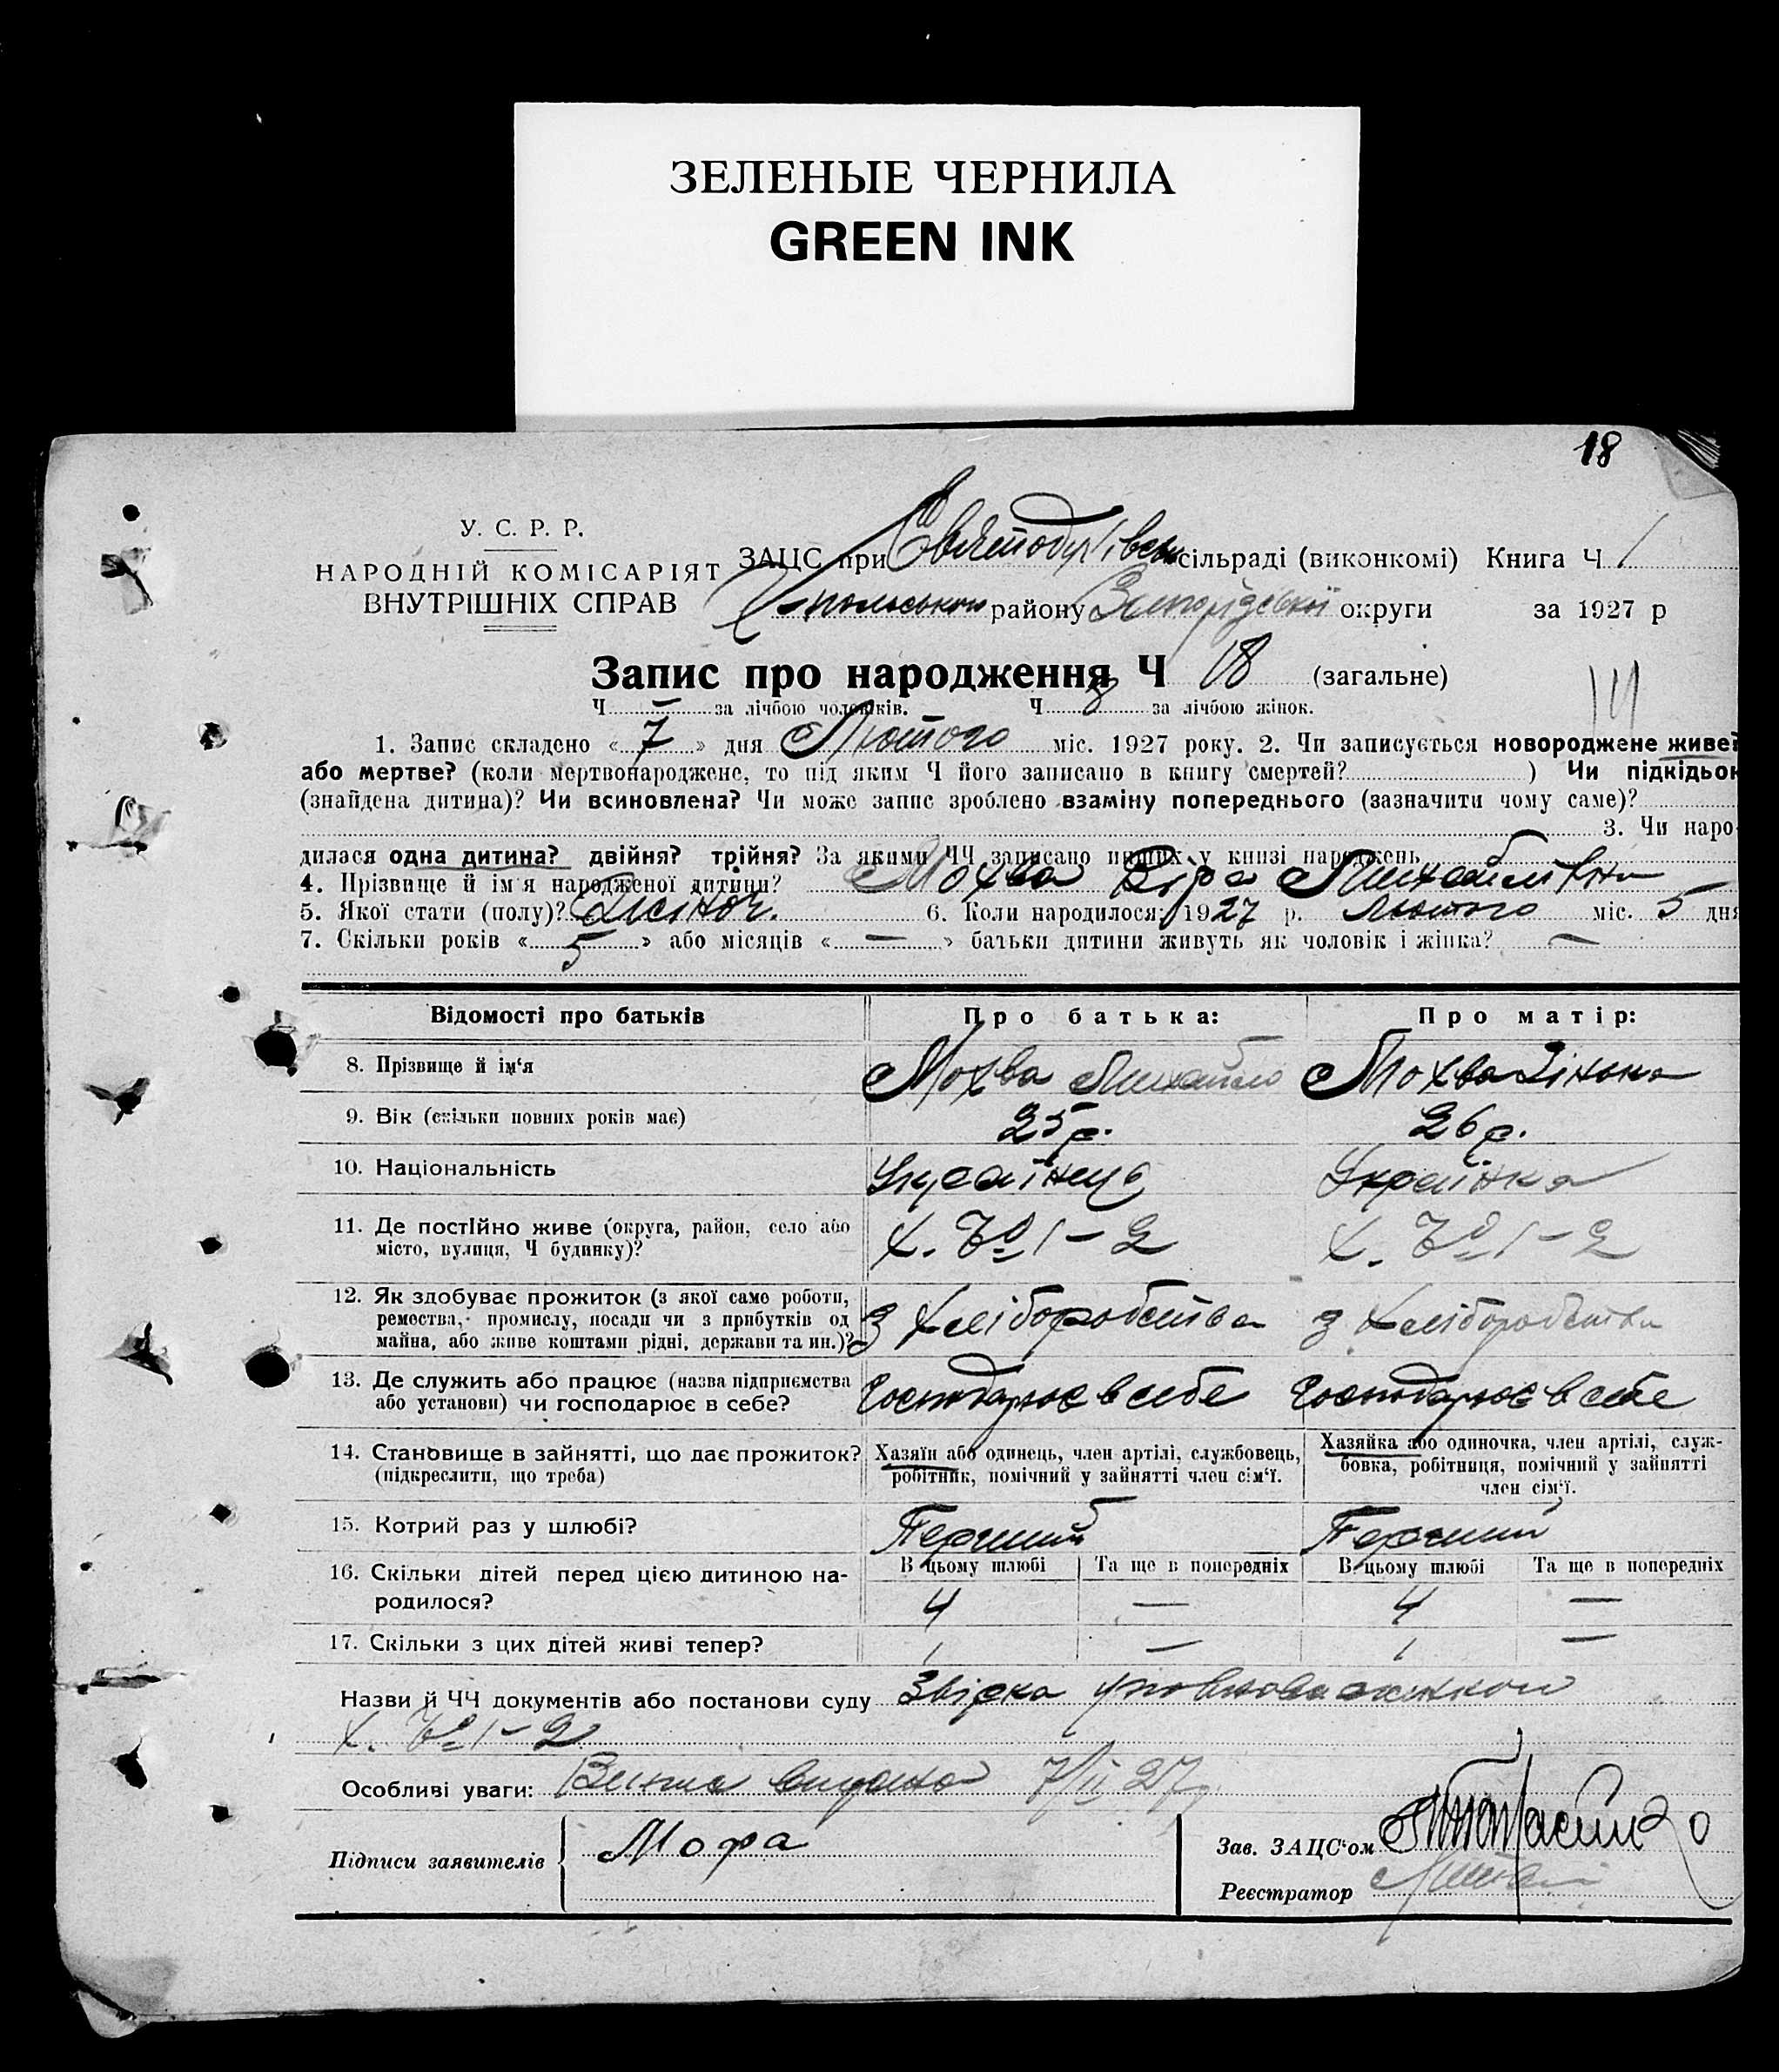 ЗЕЛЕНЫЕ ЧЕРНИЛА
GREEN INK
18
У. С. Р. Р.
НАРОДНІЙ КОМІСАРІЯТ
ВНУТРІШНІХ СПРАВ
ЗАЦС при сільраді (виконкомі) Книга Ч 1
району Запорізької округи за 1927 р
Запис про народження Ч 18 (загальне)
Ч — за лічбою чоловіків. Ч 8 за лічбою жінок.
1. Запис складено «7» дня Лютого міс. 1927 року. 2. Чи записується новороджене живе?
або мертве? (коли мертвонароджене, то під яким Ч його записано в книгу смертей? ) Чи підкідьок
(знайдена дитина)? Чи всиновлена? Чи може запис зроблено взаміну попереднього (зазначити чому саме)?
3. Чи наро-
дилася одна дитина? двійня? трійня? За якими ЧЧ записано инших у книзі народжень
4. Прізвище й ім'я народженої дитини? Мохва Віра Михайлівна
5. Якої стати (полу)? Жіноч. 6. Коли народилося: 1927 р. Лютого міс. 5 дня
7. Скільки років «5» або місяців «—» батьки дитини живуть як чоловік і жінка? —
Відомості про батьків Про батька: Про матір:
8. Прізвище й ім'я Мохва Михайло Мохва
9. Вік (скільки повних років має) 25 р. 26 р.
10. Національність Українець Українка
11. Де постійно живе (округа, район, село або
місто, вулиця, Ч будинку)? Х. № 1-2 Х. № 1-2
12. Як здобуває прожиток (з якої саме роботи,
ремества, промислу, посади чи з прибутків од
майна, або живе коштами рідні, держави та ин.)? З хліборобства З хліборобства
13. Де служить або працює (назва підприємства
або установи) чи господарює в себе? Господарює в себе Господарює в себе
14. Становище в зайнятті, що дає прожиток?
(підкреслити, що треба)
Хазяїн або одинець, член артілі, службовець,
робітник, помічний у зайнятті член сім'ї.
Хазяйка або одиночка, член артілі, служ-
бовка, робітниця, помічний у зайнятті
член сім'ї.
15. Котрий раз у шлюбі? Перший Перший
16. Скільки дітей перед цією дитиною на-
родилося?
В цьому шлюбі Та ще в попередніх В цьому шлюбі Та ще в попередніх
4 — 4 —
17. Скільки з цих дітей живі тепер? 1 — 1 —
Назви й ЧЧ документів або постанови суду Звірка уповноваженого
х. № 1-2
Особливі уваги: видана 7/II 27 р.
Підписи заявителів Мофа
Зав. ЗАЦС'ом
Реєстратор